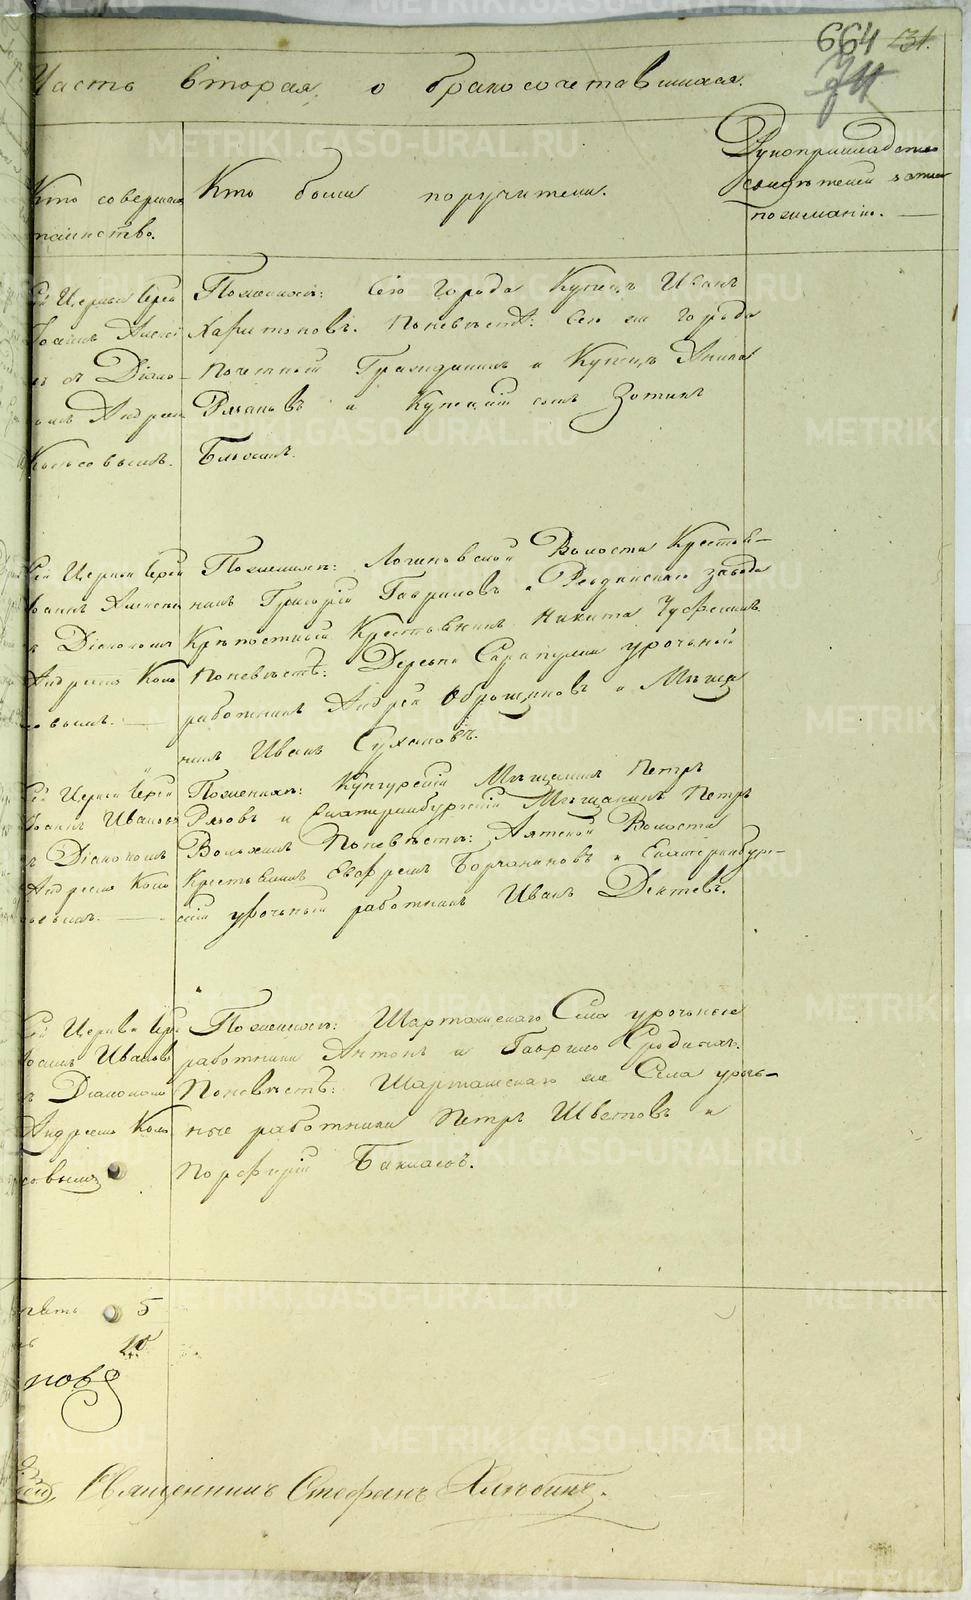 664 131.
74
Часть вторая, о бракосочетавшихся.
Кто совершал
таинство.
Кто были поручители.
Рукоприкладство
свидѣтелей записи
по желанію.
Сей Церкви Іерей
Іоаннъ Алексѣ
въ съ Діако
номъ Андреем
Колосовымъ.
По женихѣ: сего города Купецъ Иванъ
Харитоновъ. По невѣстѣ: сего же города
почетный Гражданинъ и Купецъ Аника
Рязановъ и Купецкій сынъ Зотикъ
Блохинъ.
Сей Церкви Іерей
Іоаннъ Алексѣев
съ Діакономъ
Андреемъ Коло
совымъ.
По женихѣ: Логиновской Волости Крестья-
нинъ Григорій Гавриловъ и Ревдинскаго завода
Крѣпостный Крестьянинъ Никита
По невѣстѣ: Деревни Сарапулки урочный
работникъ Андрей Оброщиковъ и Мѣща
нинъ Иванъ Сухановъ.
Сей Церкви Іерей
Іоаннъ Ивановъ
съ Діакономъ
Андреемъ Коло
совымъ.
По женихѣ: Кунгурскій Мѣщанинъ Петръ
и Екатеринбургскій Мѣщанинъ Петръ
По невѣстѣ: Аятской Волости
Крестьянинъ Евфремъ и Екатеринбург-
скій урочный работникъ Иванъ Дектевъ.
Сей Церкви Іер.
Іоаннъ Ивановъ
съ Діакономъ
Андреемъ Коло
совымъ
По женихѣ: Шарташскаго Села урочные
работники Антонъ и Гаврило Сродины.
По невѣстѣ: Шарташскаго же Села уроч-
ные работники Петръ Шветовъ и
Порфирій Баклаевъ.
пять 5
повъ
Священникъ Стефанъ Хлѣбинъ.
METRIKI.GASO-URAL.RU